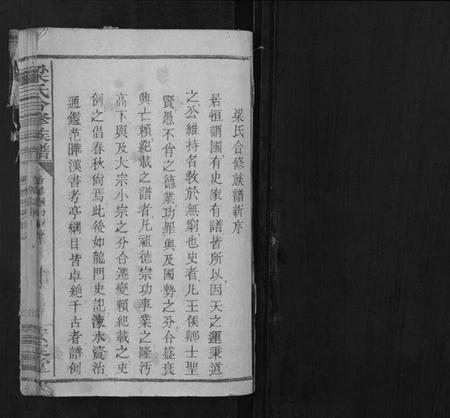 梁氏合修族譜新序
居恒謂國有史家有譜皆所以因天之運秉道
之公維持名教於無窮也史者凡王侯卿士聖
賢愚不肖之德業功罪與及國勢之分合盛衰
興亡賴紀載之譜者凡祖德宗功事業之隆汚
高下與及大宗小宗之分合遷變賴紀載之史
例之倡春秋尙焉此後如龍門史記涑水資治
通鑑范曄漢書考亭綱目皆卓絶千古者譜例
梁氏合修族譜